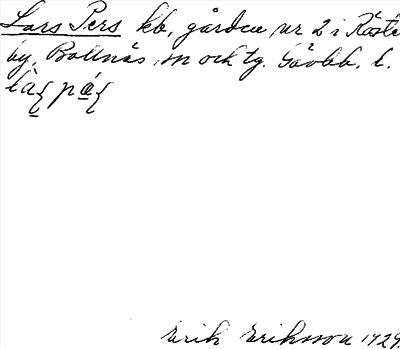 Lars Pers kb, gården nr 2 i Röste
by, Bollnäs sn och tg. Gävleb. l.
Erik Eriksson 1929